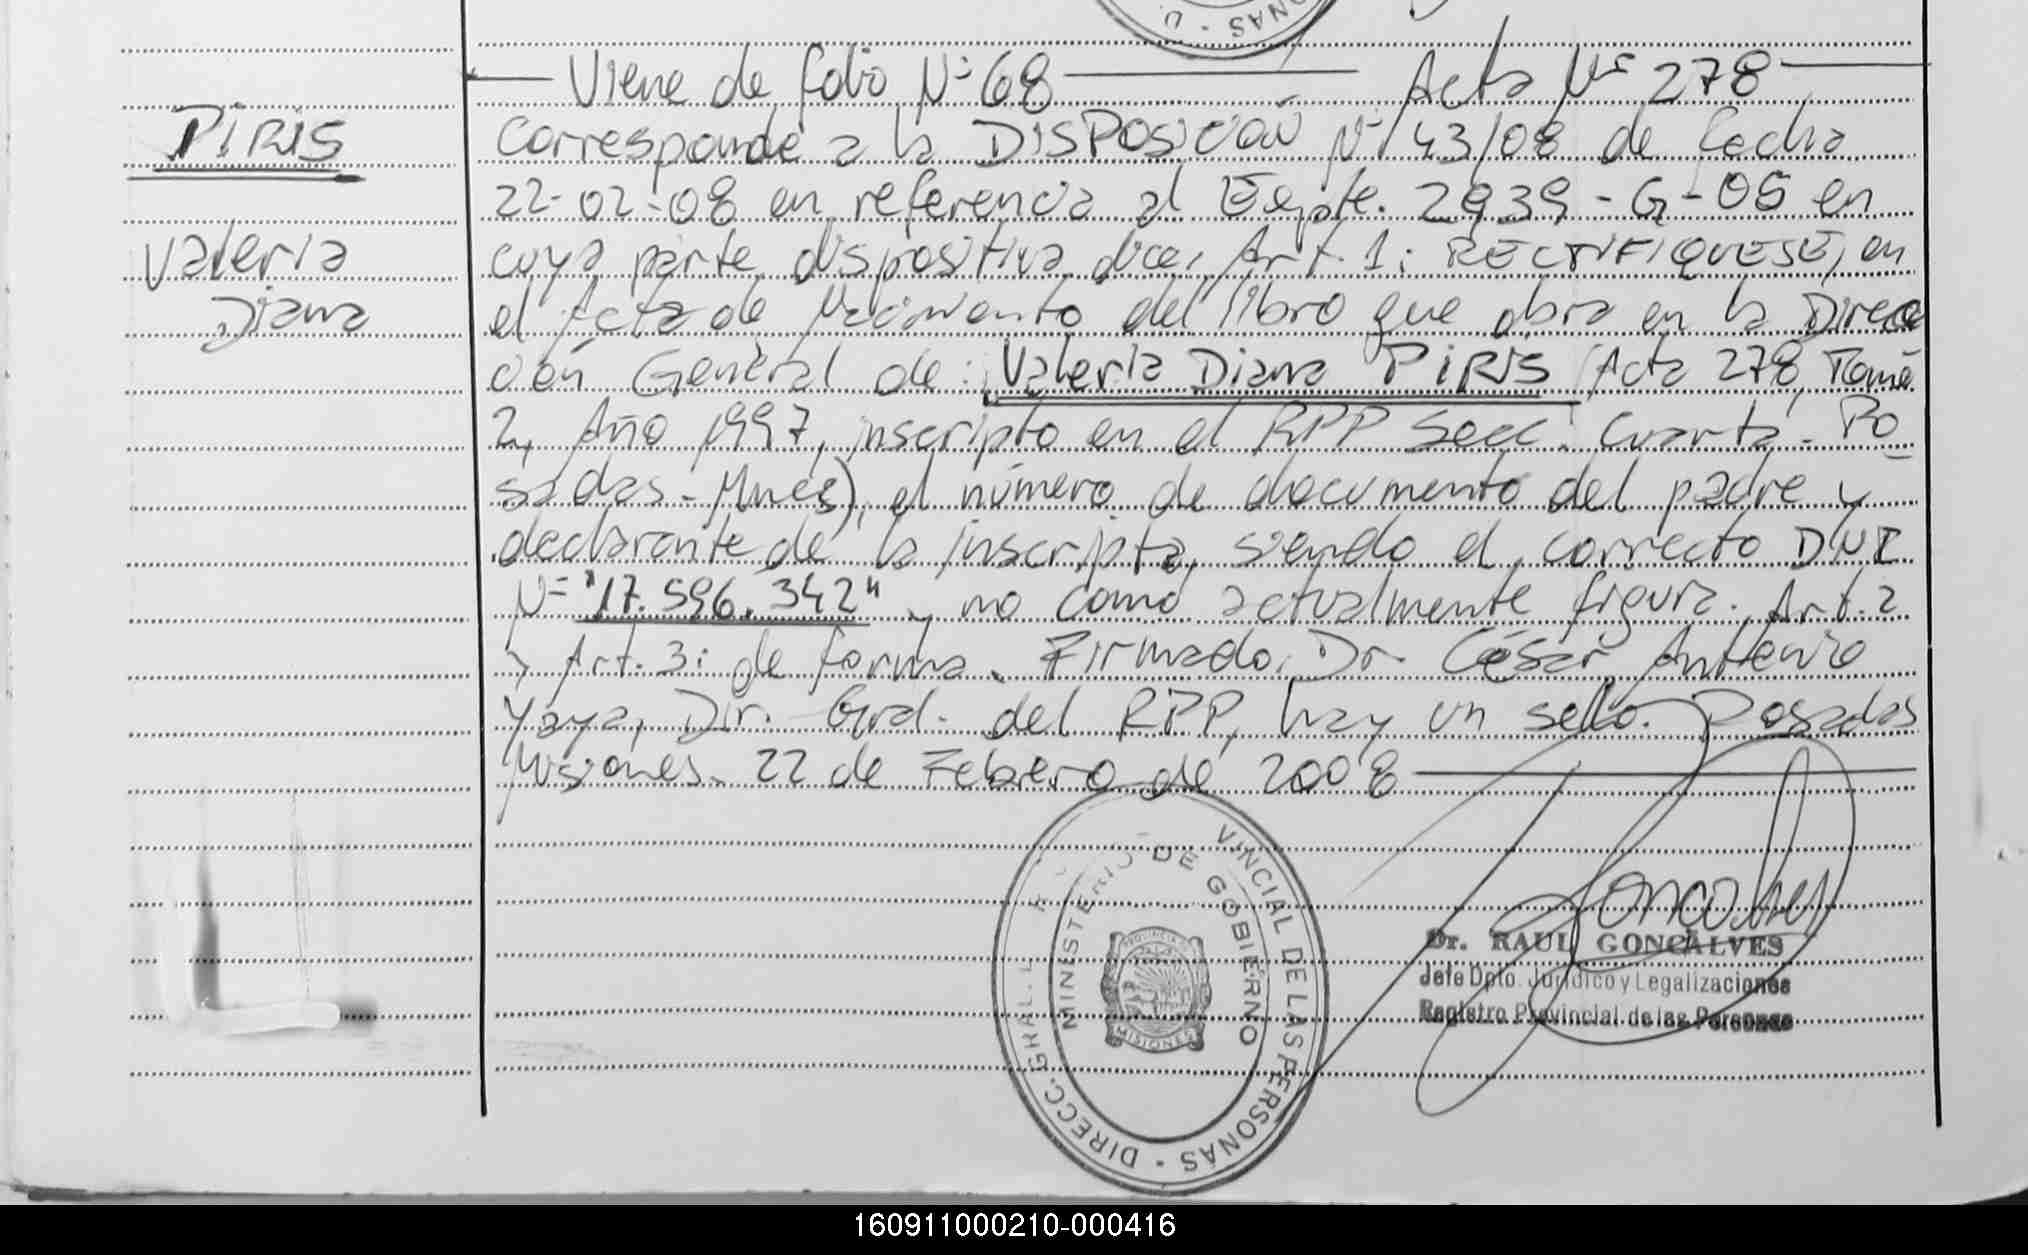 Viene de folio Nº 68 Acta Nº 278
PIRIS
Corresponde a la DISPOSICIÓN Nº 143/08 de fecha
22-02-08 en referencia al Expte. 2939-G-05 en
Valeria
cuya parte dispositiva dice, Art. 1: RECTIFIQUESE, en
Diana
el Acta de Nacimiento del libro que obra en la Direc
ción General de: Valeria Diana PIRIS (Acta 278, Tomo
2, Año 1997, inscripto en el RPP Secc. Cuarta - Po
sadas - Mnes), el número de documento del padre y
declarante de la inscripta, siendo el correcto DNI
Nº "17.596.342" y no como actualmente figura. Art. 2
y Art. 3: de forma. Firmado, Dr. César Antonio
Yaya, Dir. Gral. del RPP, hay un sello. Posadas
Misiones. 22 de Febrero de 2008
DIRECC. GRAL. VINCIAL DE LAS PERSONAS
MINISTERIO DE GOBIERNO
MISIONES
Dr. RAUL GONCALVES
Jefe Dpto. Jurídico y Legalizaciones
Registro Provincial de las Personas
160911000210-000416